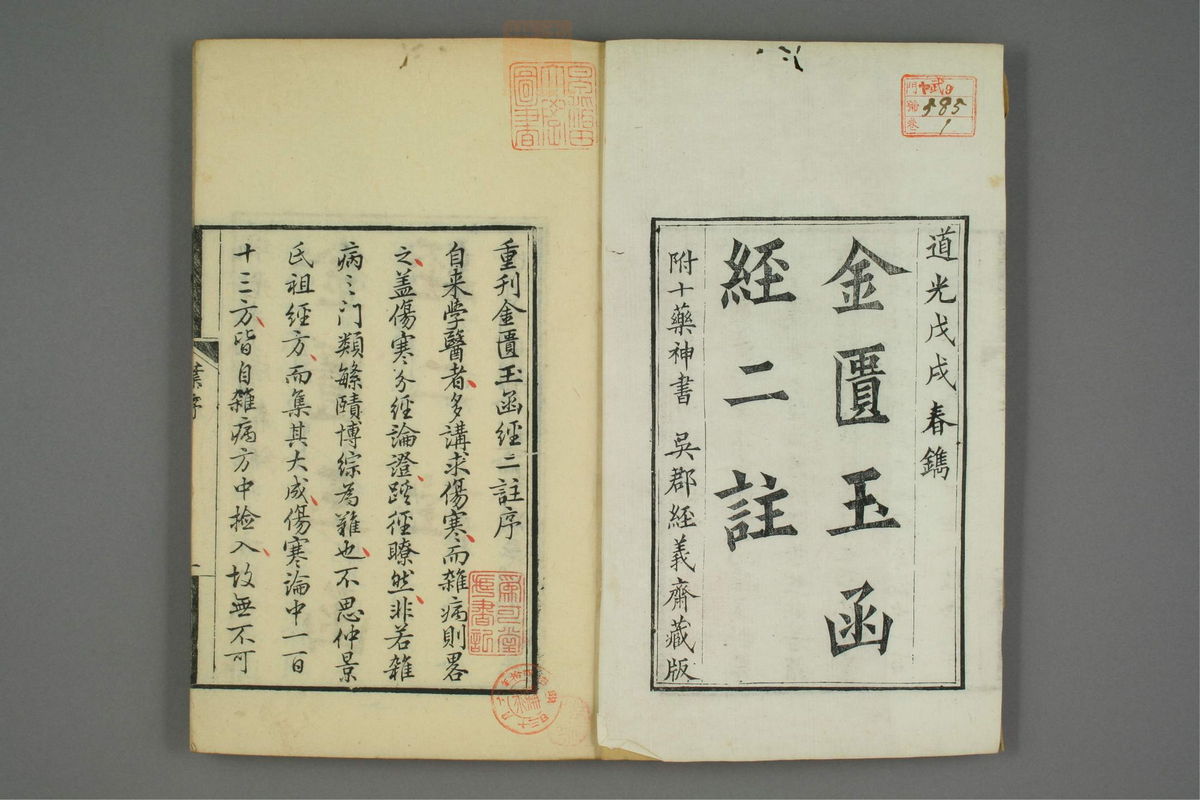 道光戊戌春鐫
金匱玉函
經二註
附十藥神書 吳郡經義齋藏版
門
號
卷
585
1
重刊金匱玉函經二註序
自来学醫者多講求傷寒而雜病則畧
之盖傷寒分經論證蹊徑瞭然非若雜
病〻門類緐賾博綜為難也不思仲景
氏祖經方而集其大成傷寒論中一百
十三方皆自雜病方中检入故無不可
圖書